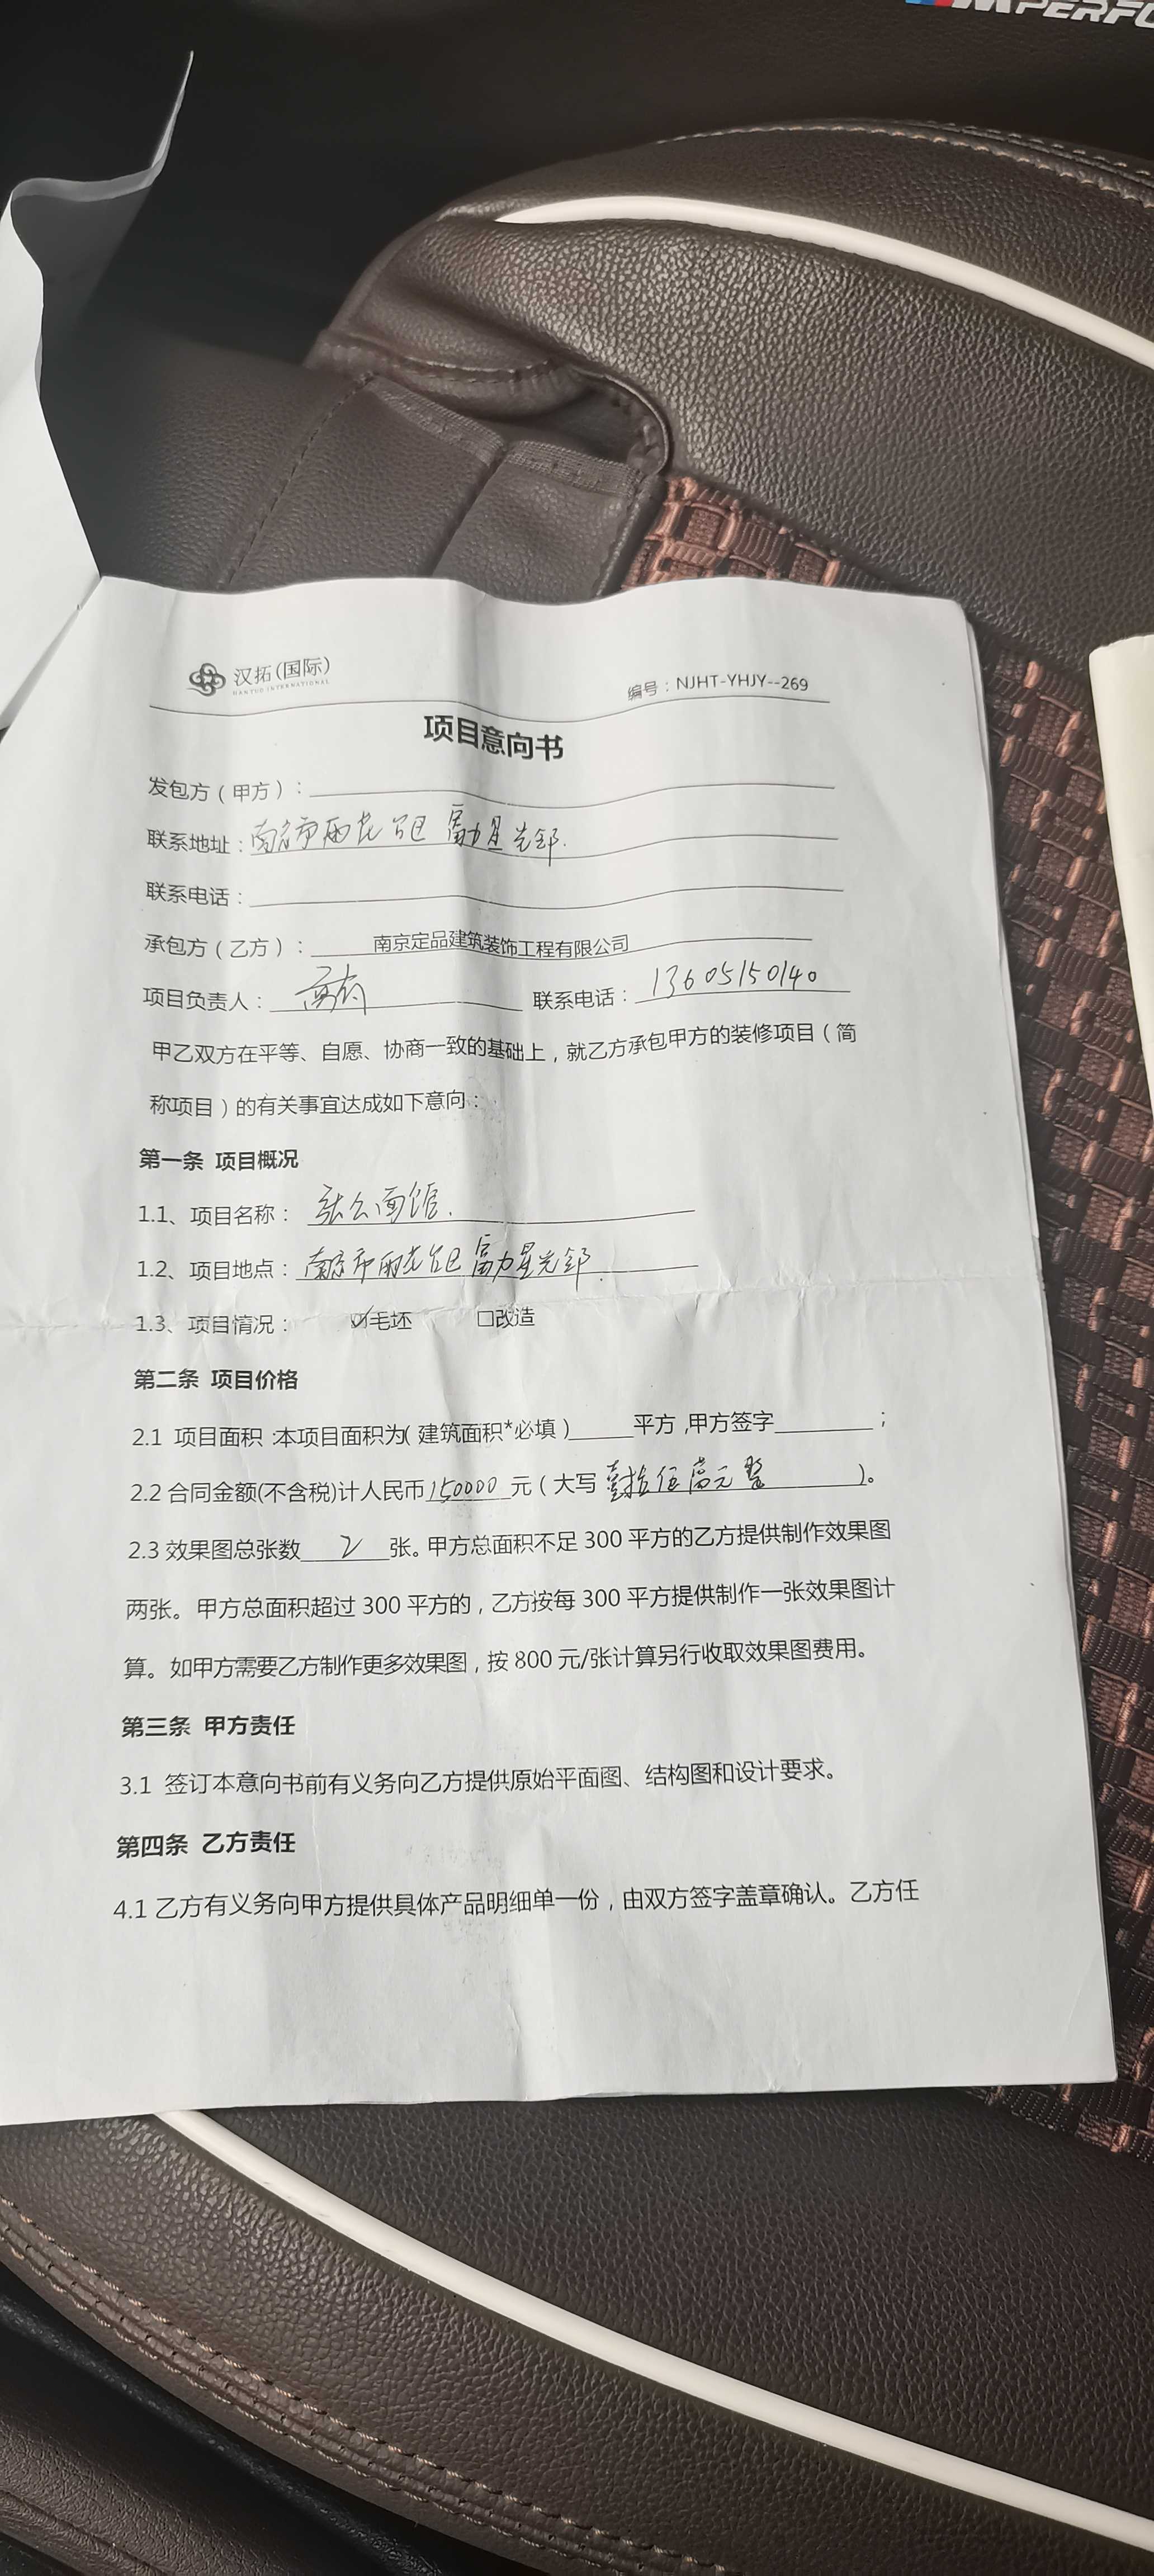 M PERFO
汉拓(国际)
HANTUO INTERNATIONAL
编号：NJHT-YHJY--269
项目意向书
发包方（甲方）：
联系地址：南京市雨花台区 富力星光邻.
联系电话：
承包方（乙方）：南京定品建筑装饰工程有限公司
项目负责人： 联系电话：13605150140
甲乙双方在平等、自愿、协商一致的基础上，就乙方承包甲方的装修项目（简
称项目）的有关事宜达成如下意向：
第一条 项目概况
1.1、项目名称： 张公面馆.
1.2、项目地点：南京市雨花台区 富力星光邻.
1.3、项目情况： ☑毛坯 □改造
第二条 项目价格
2.1 项目面积：本项目面积为（建筑面积*必填）______平方，甲方签字________；
2.2 合同金额(不含税)计人民币150000元（大写 壹拾伍萬元整）。
2.3 效果图总张数 2 张。甲方总面积不足 300 平方的乙方提供制作效果图
两张。甲方总面积超过 300 平方的，乙方按每 300 平方提供制作一张效果图计
算。如甲方需要乙方制作更多效果图，按 800 元/张计算另行收取效果图费用。
第三条 甲方责任
3.1 签订本意向书前有义务向乙方提供原始平面图、结构图和设计要求。
第四条 乙方责任
4.1 乙方有义务向甲方提供具体产品明细单一份，由双方签字盖章确认。乙方任